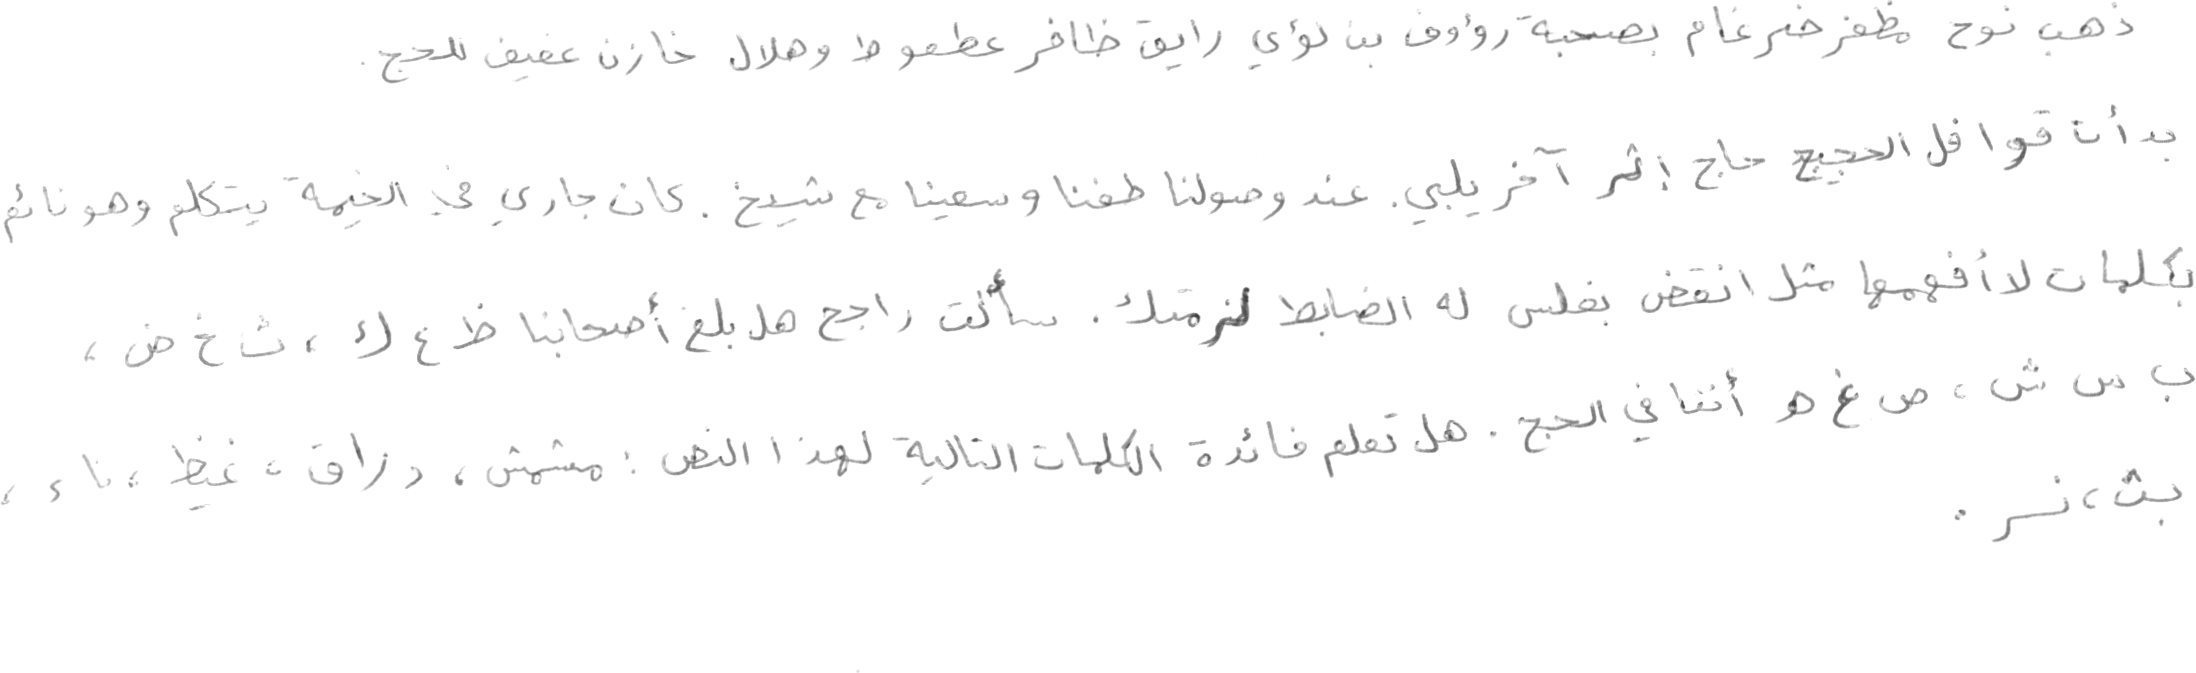 ذهب نوح مظفر ضرغام بصحبة رؤوف بن لؤي رايق ظافر عطعوط وهلال خازن عفيف للحج .
بدأت قوافل الحجيج حاج إثر آخر يلبي . عند وصولنا طفنا وسعينا مع شيخ . كان جاري في الخيمة يتكلم وهو نائم
بكلمات لا أفهمها مثل انقض بفلس له الضابط لنزمتك . سألت راجح هل بلغ أصحابنا ظ ع ك ، ث خ ض ،
ب س ش ، ص غ هـ أننا في الحج . هل تعلم فائدة الكلمات التالية لهذا النص : مشمش ، دراق ، غيظ ، ناء ،
بث ، نسر .